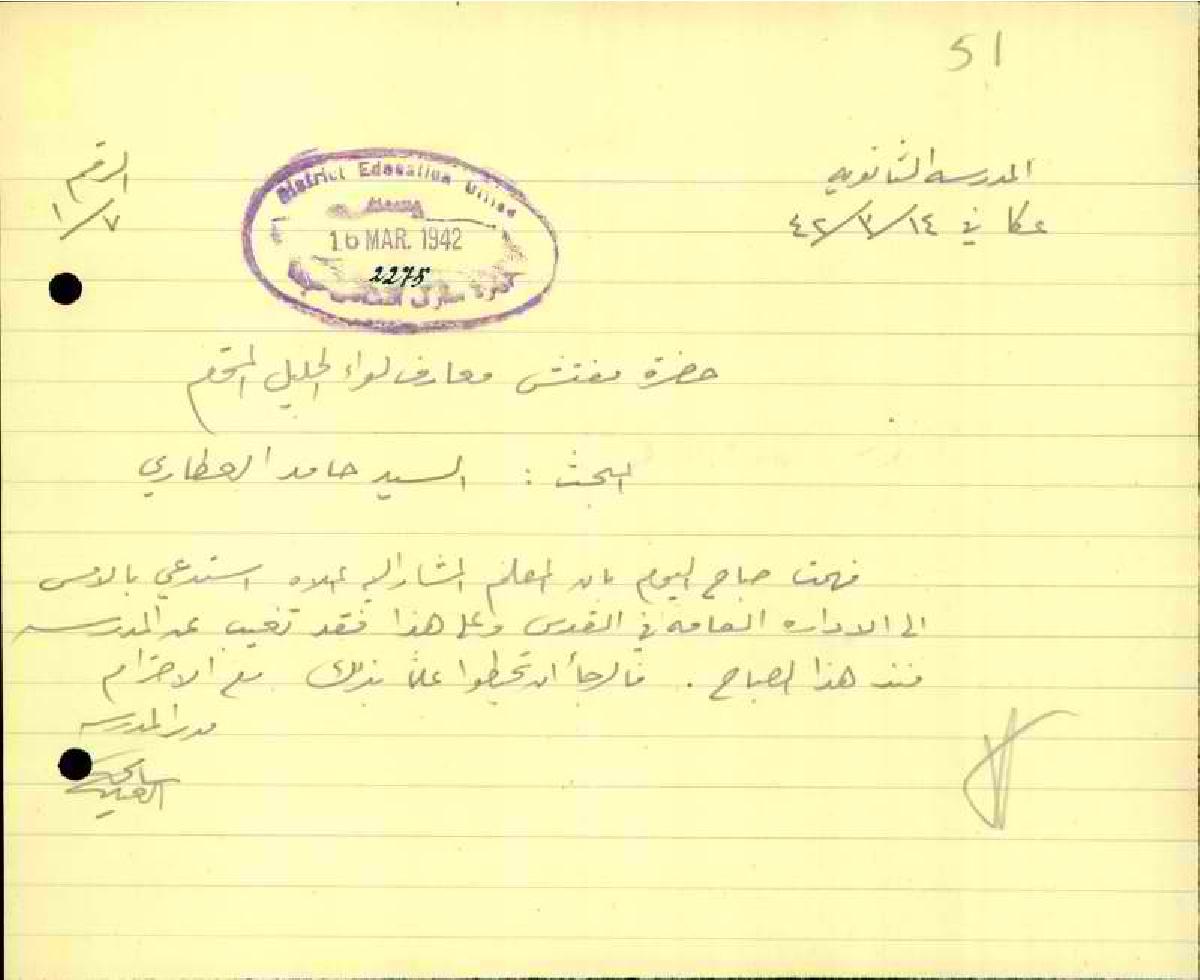 51
المدرسة الثانوية
عكا في ١٤/٣/٤٢
الرقم
٧/١
District Education Office
16 MAR. 1942
2275
حضرة مفتش معارف لواء الجليل المحترم
البحث : السيد حامد العطاري
فهمت صباح اليوم بان المعلم المشار اليه اعلاه استدعي بالامس
الى الاداره العامه في القدس وعلى هذا فقد تغيب عن المدرسه
منذ هذا الصباح . فالرجأ ان تحيطوا علماً بذلك مع الاحترام
مدير المدرسه